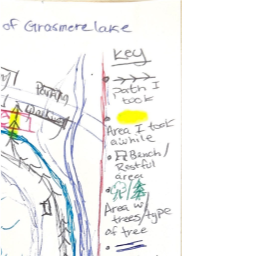 of Grasmere lake
Key
Path I
took
Area I took
awhile
Bench/
Restful
area
Area w/
trees/type
of tree